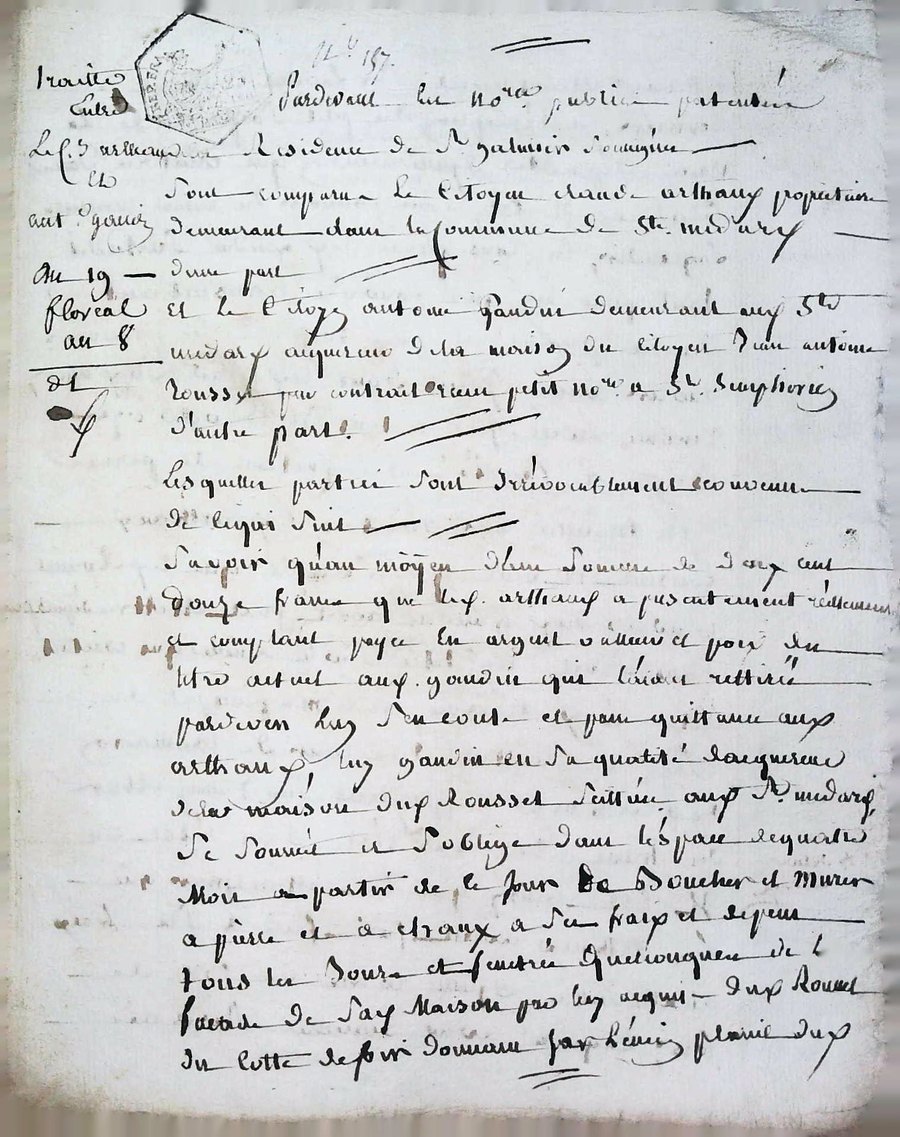 traitté
Entre
Le C. arthaud
Et
ant.e gaudin
du 19
floréal
an 8
Pardevant les no.res publics patentés
Residence de St galmier Soussignés
Sont comparu Le Citoyen claude arthaux propriétaire
demeurant dans la Commune de St. medard
d'une part
Et Le Citoyen antoine gaudin demeurant aux St.
medard acquereur de la maison du Citoyen antoine
Rousset par contrait recu petit no.re a St. Simphorien
d'autre part.
Lesquelles parties sont irrévocablement convenu
de ce qui suit
Savoir qu'au moÿen d'une somme de deux cent
douze francs que led. arthaud a presentement réellement
et comptant payé En argent valleur et poix du
titre actuel aud. gaudin qui l'aiant rettirée
pardevers luy s'en conte et passe quittance aud
arthaux, luy gaudin en sa qualité d'acquereur
de la maison dud Rousset scittuée aud St. medard
Se Soumet et S'oblige dans l'éspace de quatre
Mois a partir de ce Jour De Boucher et Murer
a pierre et a chaux a ses fraix et depens
tous les Jours et fenetres quelconques de l
facade de sad Maison par luy acquis dud Rousset
du cotté de soir donnant sur le plassé dud